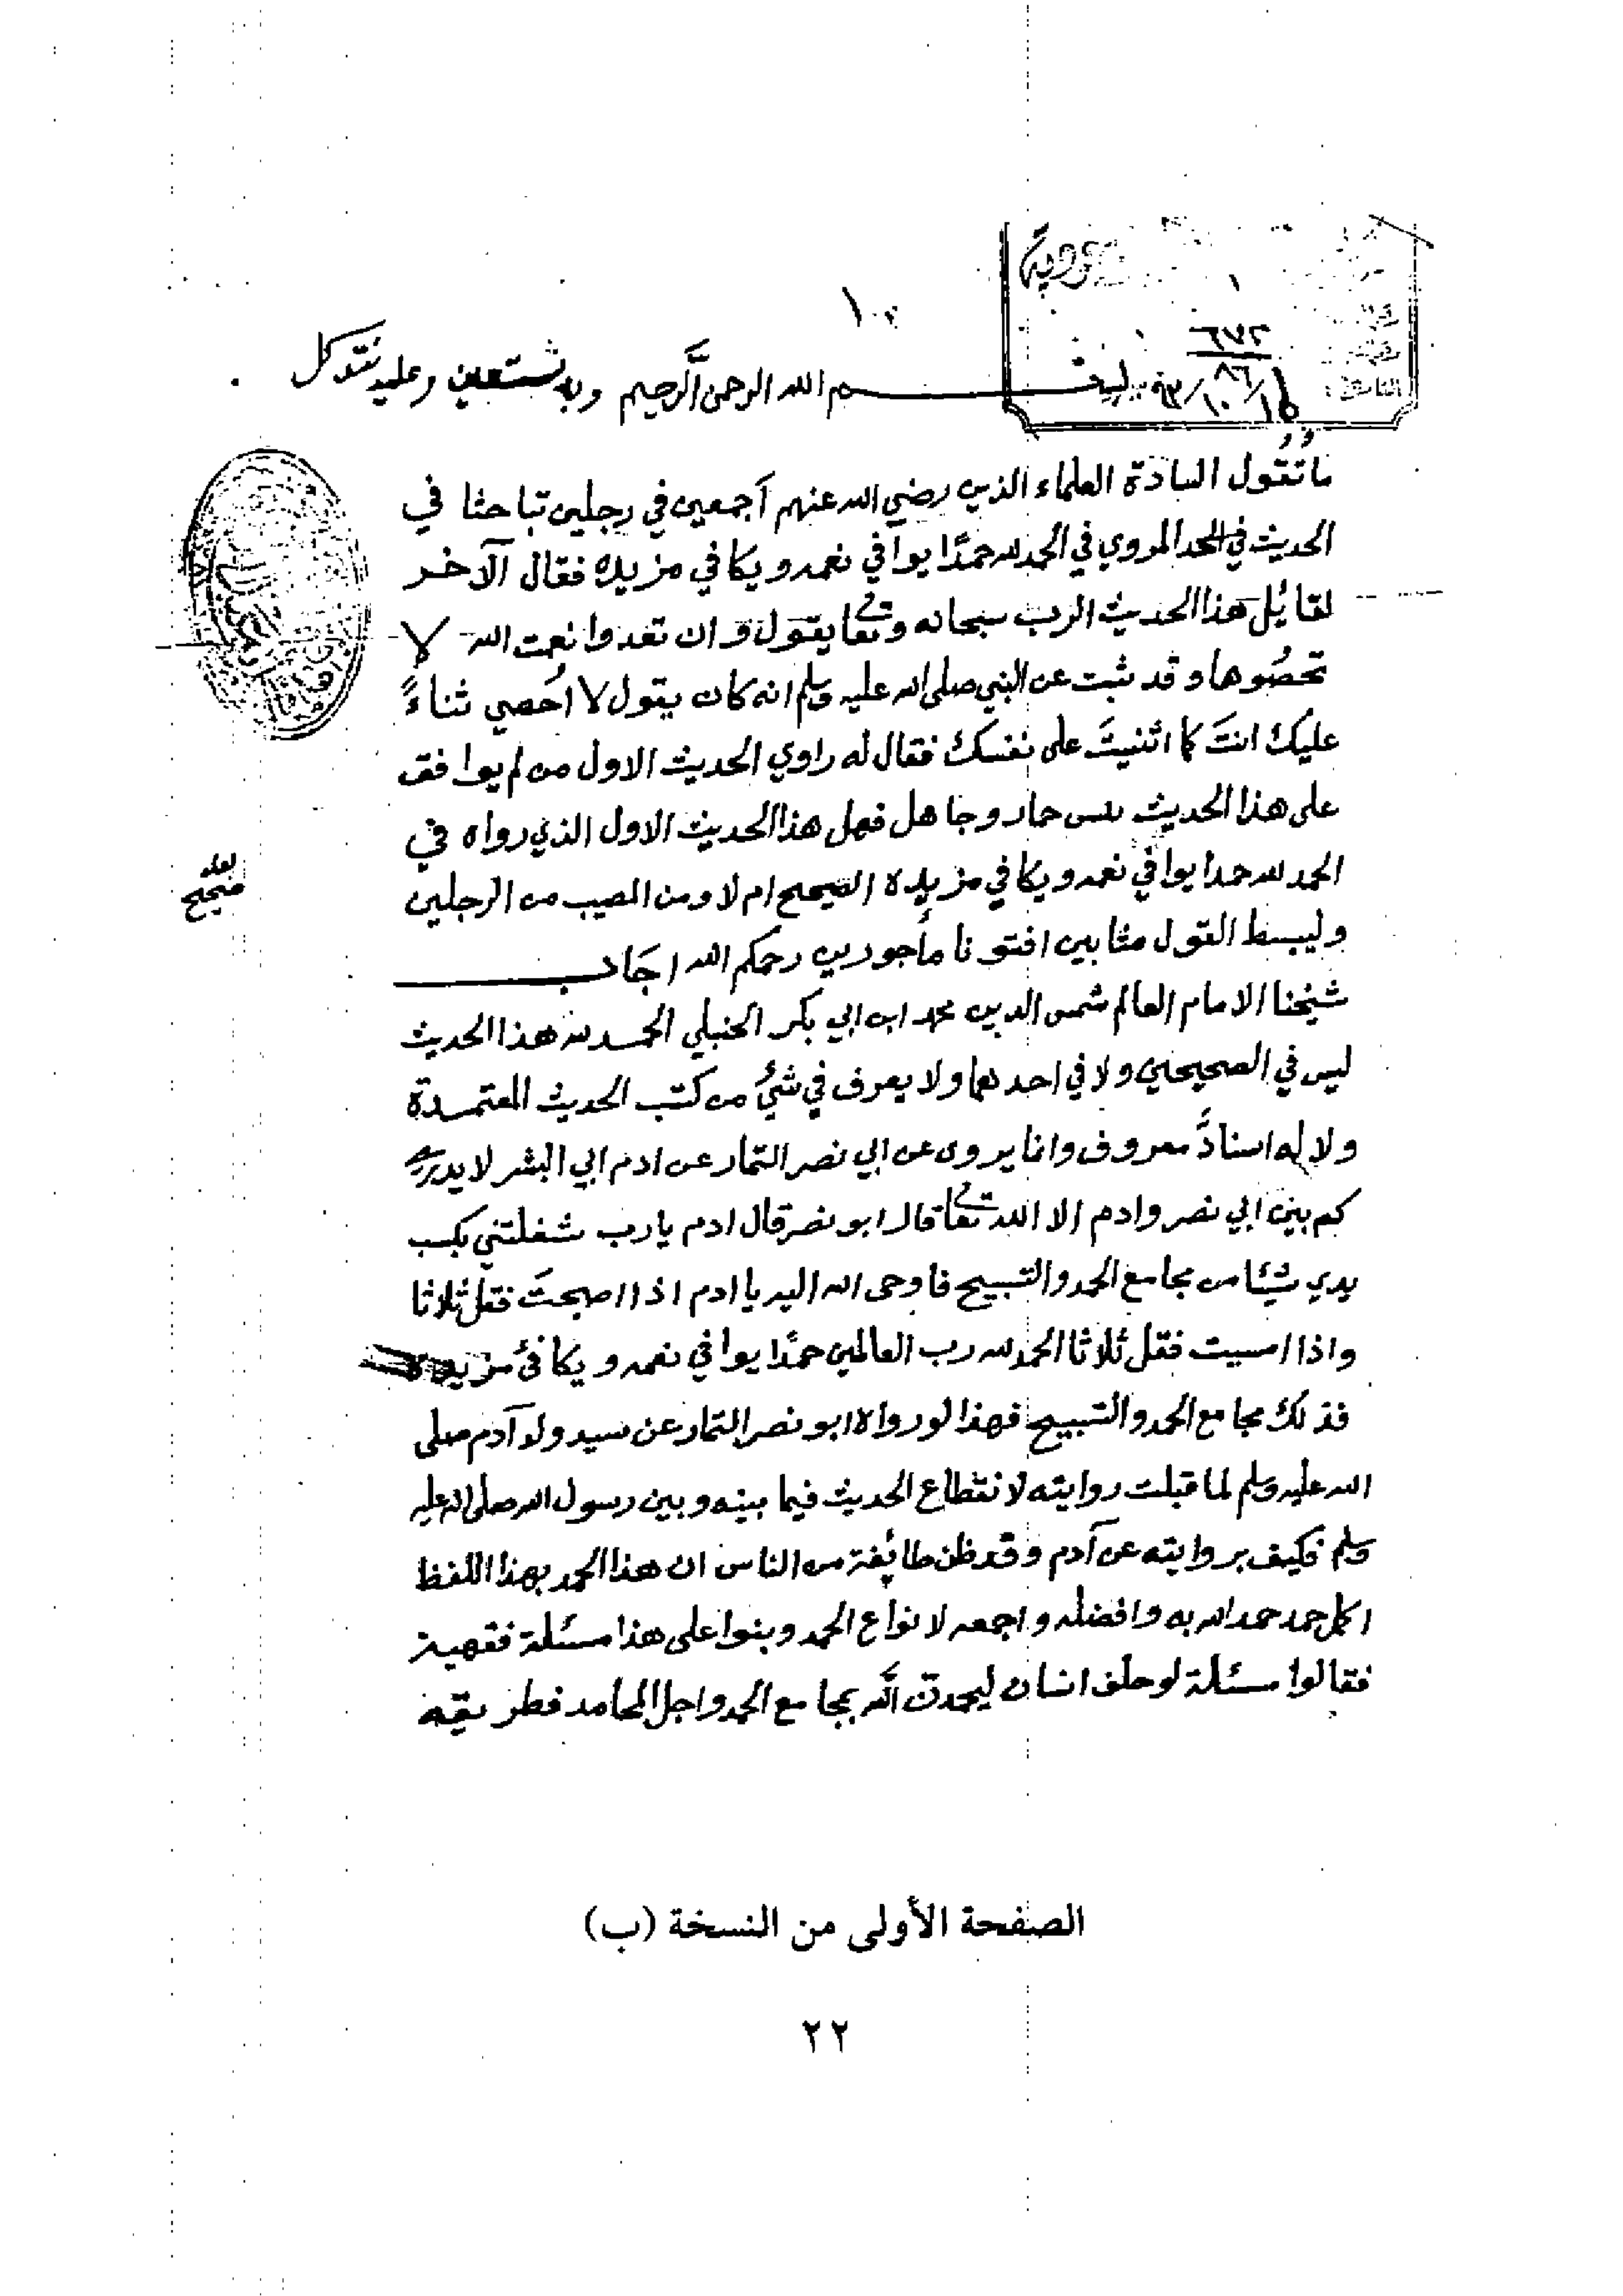 ١
٦٧٢
بسم الله الرحمن الرحيم وبه نستعين وعليه نتوكل
ما تقول السادة العلماء الذين رضي الله عنهم أجمعين في رجلين تباحثا في
الحديث في الحمد المروي في الحمد لله حمدًا يوافي نعمه ويكافي مزيده فقال الآخر
لقائل هذا الحديث الرب سبحانه وتعا يقول وان تعدوا نعمت الله لا
تحصوها وقد ثبت عن النبي صلى الله عليه وسلم انه كان يقول لا أحصي ثناءً
عليك انتَ كما اثنيتَ على نفسك فقال له راوي الحديث الاول من لم يوافق
على هذا الحديث حمار وجاهل فهل هذا الحديث الاول الذي رواه في
الحمد لله حمدا يوافي نعمه ويكافي مزيده الصحيح ام لا ومن المصيب من الرجلين
لعله
صحيح
وليبسط القول مثابين افتونا مأجورين رحمكم الله اجاب
شيخنا الامام العالم شمس الدين محمد ابن ابي بكر الحنبلي الحمد لله هذا الحديث
ليس في الصحيحين ولا في احدهما ولا يعرف في شئٍ من كتب الحديث المعتمدة
ولا له اسنادً معروف وانما يروى عن ابي نصر التمار عن ادم ابي البشر لا يدري
كم بين ابي نصر وادم الا الله تعا قال ابو نصر قال ادم يا رب شغلتني بكسب
يدي شيئا من مجامع الحمد والتسبيح فاوحى الله اليه يا ادم اذا اصبحتَ فقل ثلاثا
واذا امسيت فقل ثلاثا الحمد لله رب العالمين حمدًا يوافي نعمه ويكافئ مزيده
فذلك مجامع الحمد والتسبيح فهذا لو رواه ابو نصر التمار عن سيد ولد آدم صلى
الله عليه وسلم لما قبلت روايته لانقطاع الحديث فيما بينه وبين رسول الله صلى الله عليه
وسلم فكيف بروايته عن آدم وقد ظن طائفة من الناس ان هذا الحمد بهذا اللفظ
اكمل حمد حمد الله به وافضله واجمعه لانواع الحمد وبنوا على هذا مسئلة فقهية
فقالوا مسئلة لو حلف انسان ليحمدن الله بمجامع الحمد واجل المحامد فطريقه
الصفحة الأولى من النسخة (ب)
٢٢